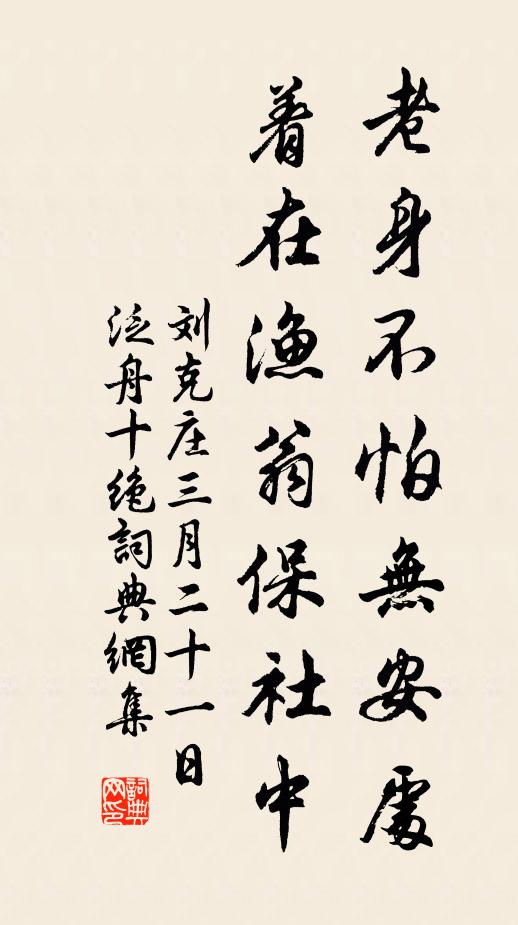 老身不怕無安處
着在漁翁保社中
刘克庄三月二十一日
泛舟十絶詞典網集
詞典
网印